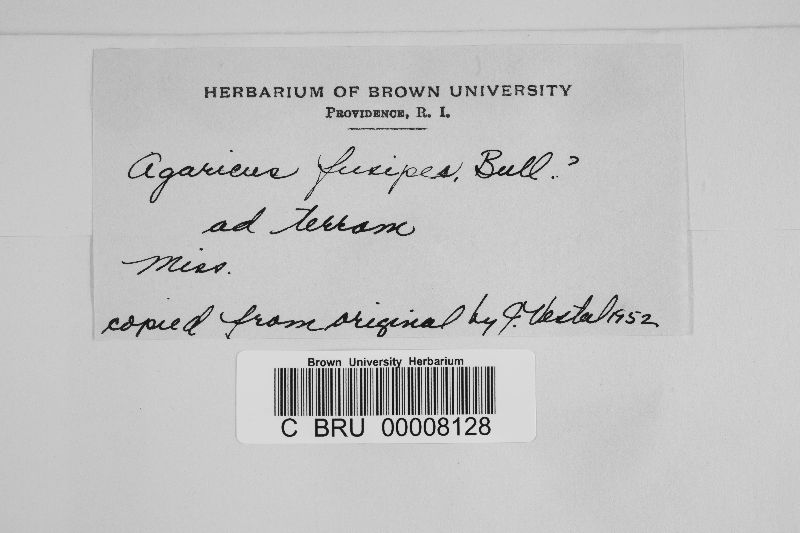 HERBARIUM OF BROWN UNIVERSITY
PROVIDENCE, R. I.
Agaricus fusipes, Bull.?
ad terram
Miss.
copied from original by J. Vestal 1952
Brown University Herbarium
C BRU 00008128